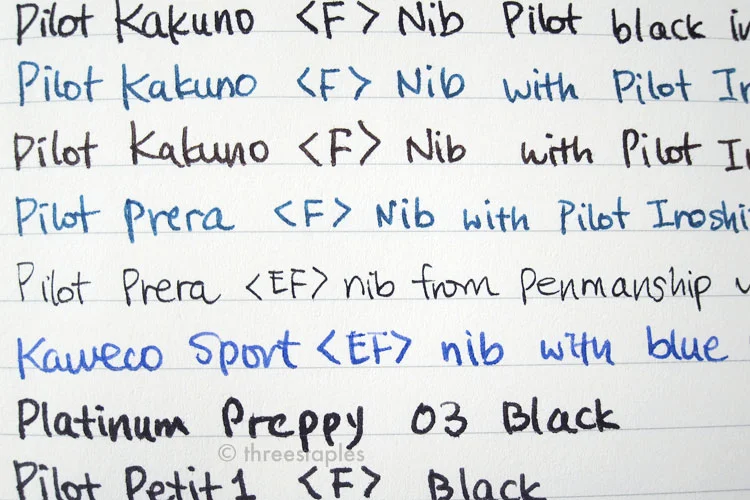 Pilot Kakuno <F> Nib Pilot black
Pilot Kakuno <F> Nib with Pilot
Pilot Kakuno <F> Nib with Pilot
Pilot Prera <F> Nib with Pilot Iroshi
Pilot Prera <EF> nib from Penmanship
Kaweco Sport <EF> nib with blue
Platinum Preppy 03 Black
© threestaples
Pilot Petit1 <F> Black